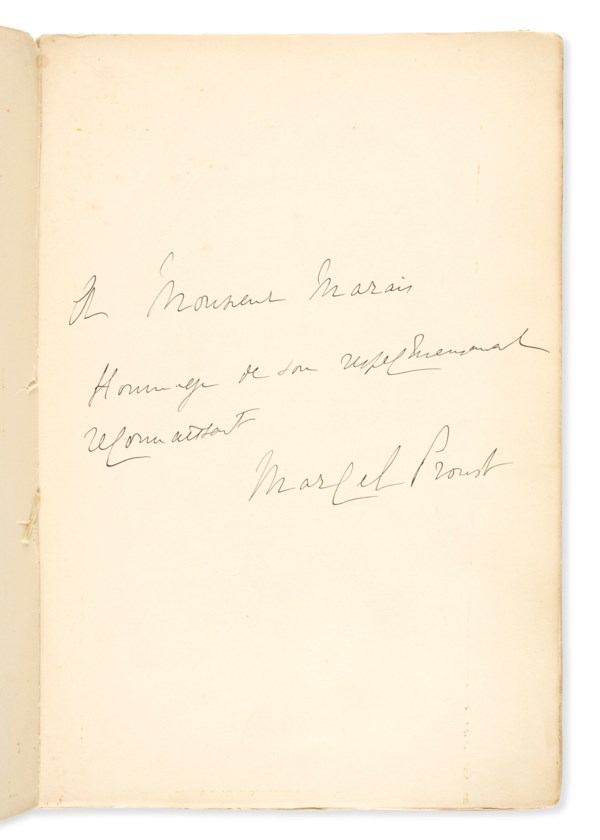 A Monsieur Marais
Hommage de son respectueusement
reconnaissant
Marcel Proust